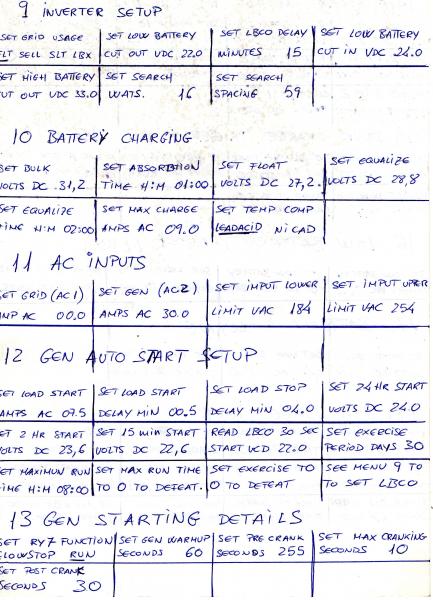 9 INVERTER SETUP
SET GRID USAGE
FLT SELL SLT LBX
SET LOW BATTERY
CUT OUT VDC 22.0
SET LBCO DELAY
MINUTES 15
SET LOW BATTERY
CUT IN VDC 24.0
SET HIGH BATTERY
CUT OUT VDC 33.0
SET SEARCH
WATS. 16
SET SEARCH
SPACING 59
10 BATTERY CHARGING
SET BULK
VOLTS DC 31,2
SET ABSORBTION
TIME H:M 01:00
SET FLOAT
VOLTS DC 27,2
SET EQUALIZE
VOLTS DC 28,8
SET EQUALIZE
TIME H:M 02:00
SET MAX CHARGE
AMPS AC 09.0
SET TEMP COMP
LEADACID NICAD
11 AC INPUTS
SET GRID (AC1)
AMP AC 00.0
SET GEN (AC2)
AMPS AC 30.0
SET IMPUT LOWER
LIMIT VAC 184
SET IMPUT UPER
LIMIT VAC 254
12 GEN AUTO START SETUP
SET LOAD START
AMPS AC 07.5
SET LOAD START
DELAY MIN 00.5
SET LOAD STOP
DELAY MIN 04.0
SET 24 HR START
VOLTS DC 24.0
SET 2 HR START
VOLTS DC 23,6
SET 15 MIN START
VOLTS DC 22,6
READ LBCO 30 SEC
START VCD 22.0
SET EXERCISE
PERIOD DAYS 30
SET MAXIMUN RUN
TIME H:M 08:00
SET MAX RUN TIME
TO 0 TO DEFEAT.
SET EXERCISE TO
0 TO DEFEAT
SEE MENU 9 TO
TO SET LBCO
13 GEN STARTING DETAILS
SET RY7 FUNCTION
GLOWSTOP RUN
SET GEN WARMUP
SECONDS 60
SET PRE CRANK
SECONDS 255
SET MAX CRANKING
SECONDS 10
SET POST CRANK
SECONDS 30